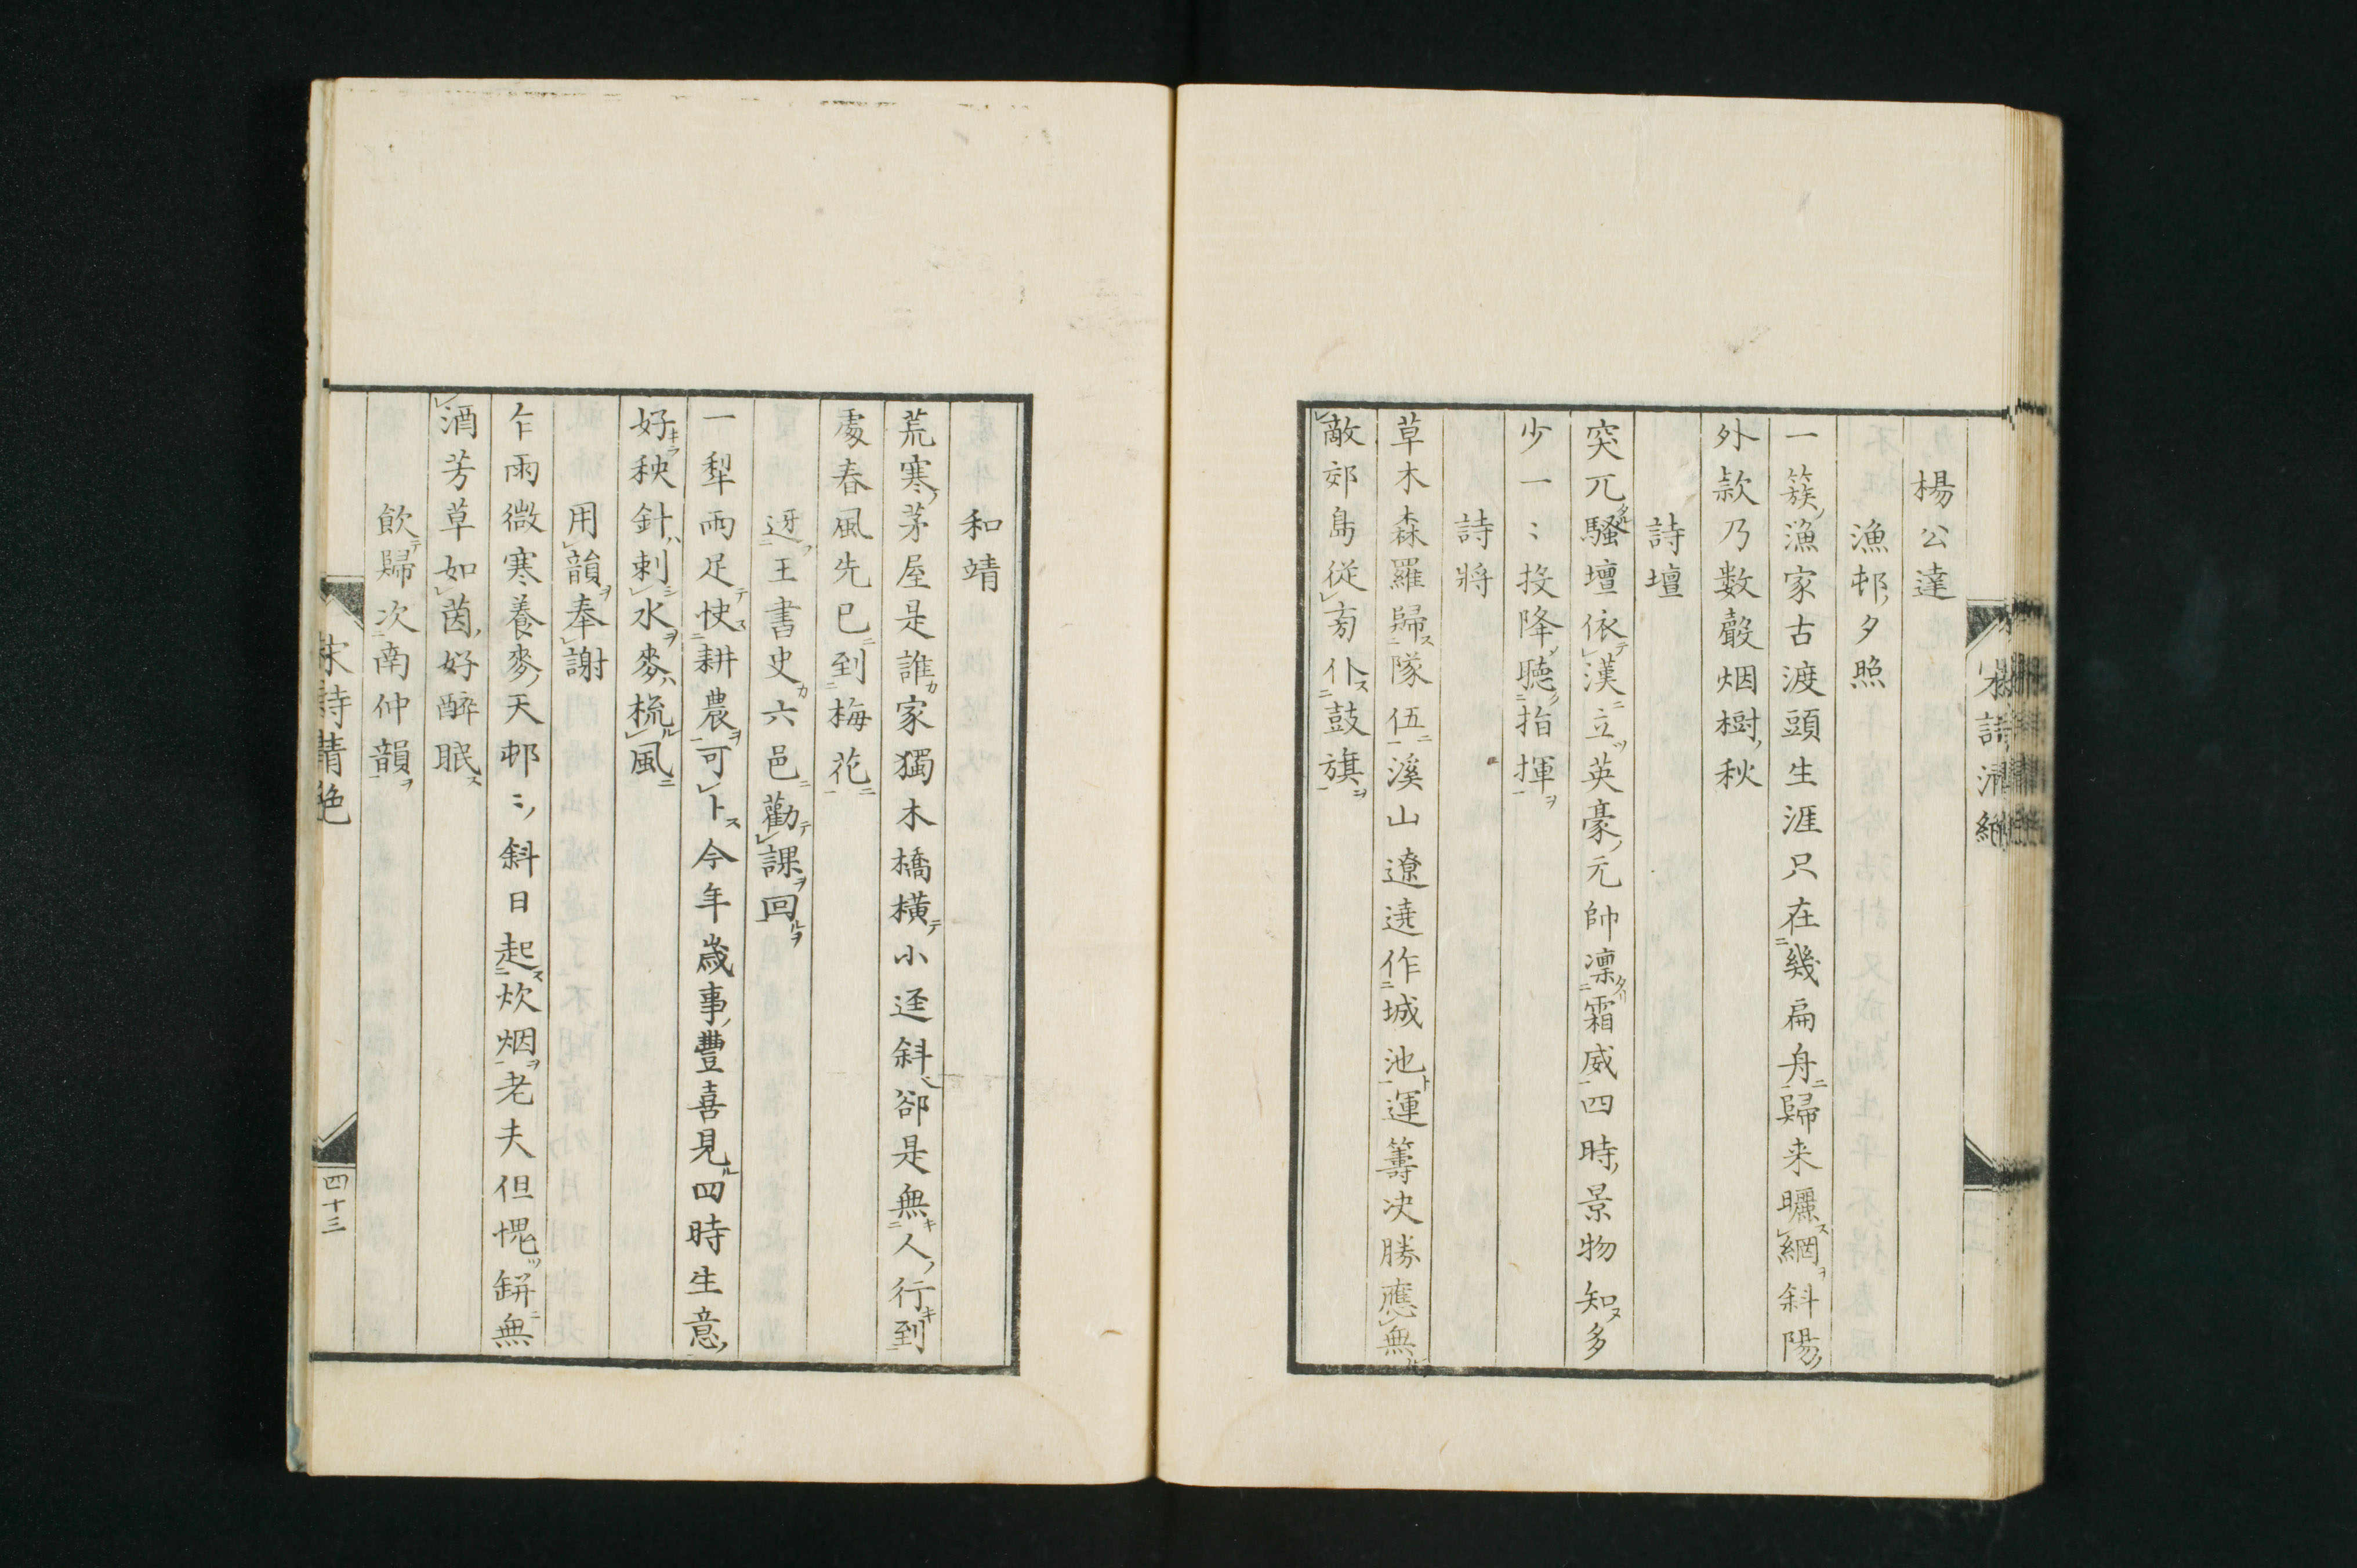 楊公達
漁邨ノ夕照
一簇ノ漁家古渡頭生涯只在幾扁舟歸来曬網斜陽
外款乃数聲烟樹ノ秋
詩壇
突兀騷壇依漢立英豪ノ元帥凛霜威四時ノ景物知多
少一〻投降聴指揮
詩將
草木森羅歸隊伍溪山遼遶作城池運籌决勝應無
敵郊島従旁仆鼓旗
和靖
荒寒ノ茅屋是誰家獨木橋横小逕斜卻是無人ノ行到
處春風先已到梅花
迓王書史六邑勸課回
一犁雨足快耕農可卜今年歳事ノ豐喜見四時生意ノ
好秧針刺水麥梳風
用韻奉謝
乍雨微寒養麥ノ天邨〻ノ斜日起炊烟老夫但愧缾無
酒芳草如茵ノ好醉眠
飲歸次南仲韻
宋詩清絶
四十三